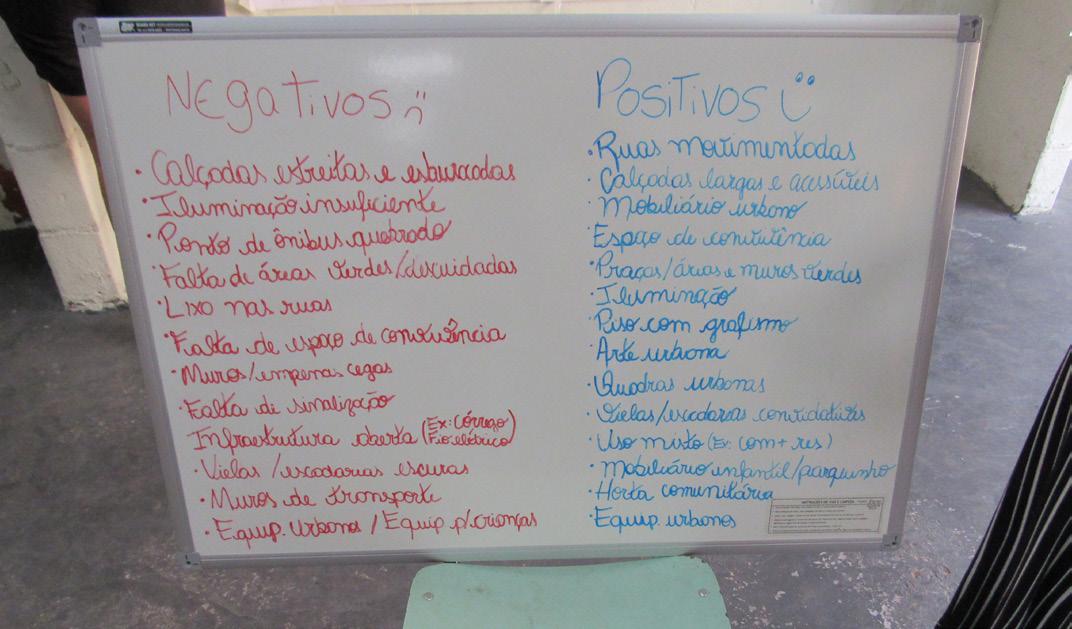 Negativos :(
• Calçadas estreitas e esburacadas
• Iluminação insuficiente
• Ponto de ônibus quebrado
• Falta de áreas verdes/descuidadas
• Lixo nas ruas
• Falta de espaço de convivência
• Muros/empenas cegas
• Falta de sinalização
Infraestrutura aberta (Ex: córrego
Fio elétrico)
• Vielas/escadarias escuras
• Muros de transporte
• Equip. Urbanos / Equip p/ crianças
Positivos :)
• Ruas movimentadas
• Calçadas largas e acessíveis
• Mobiliário urbano
• Espaço de convivência
• Praças/áreas e muros verdes
• Iluminação
• Piso com grafismo
• Arte urbana
• Quadras urbanas
• Vielas/escadarias convidativas
• Uso misto (Ex: com + res)
• Mobiliário infantil/parquinho
• Horta comunitária
• Equip. urbanos
INSTRUÇÕES DE USO E LIMPEZA